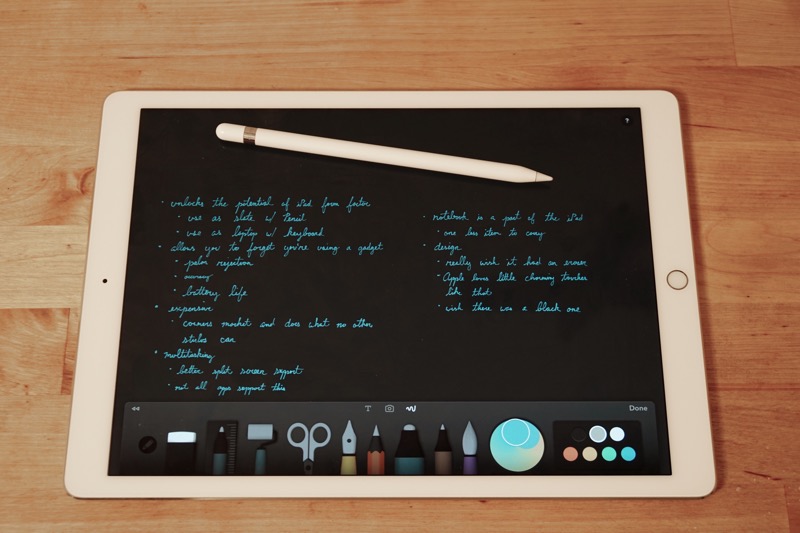 · unlocks the potential of iPad form factor
· use as slate w/ Pencil
· use as laptop w/ keyboard
· allows you to forget you're using a gadget
· palm rejection
· battery life
· expensive
· corners market and does what no other
stylus can
· multitasking
· better split screen support
· not all apps support this
· notebook is a part of the iPad
· one less item to carry
· design
· really wish it had an eraser
· Apple loves little charming touches
like that
· wish there was a black one
T
Done